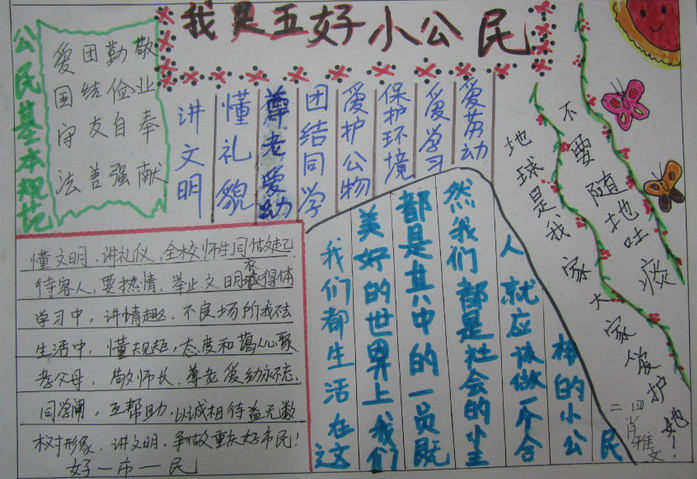 我是五好小公民
公民基本规范
爱国守法
团结友善
勤俭自强
敬业奉献
讲文明
懂礼貌
尊老爱幼
团结同学
爱护公物
保护环境
爱学习
爱劳动
不要随地吐痰
地球是我家大家爱护她!
懂文明,讲礼仪,全校师生同做起
待客人,要热情,举止文明衣得体
学习中,讲情趣,不良场所我不去
生活中,懂规矩,态度和蔼人心聚
孝父母,敬师长,尊老爱幼永不忘
同学间,互帮助,以诚相待益无数
树形象,讲文明,争做重庆好市民!
好一市一民
我们都生活在这
美好的世界上我们
都是其中的一员既
然我们都是社会的小主
人就应该做一个合
格的小公
民
二.四
肖雅文